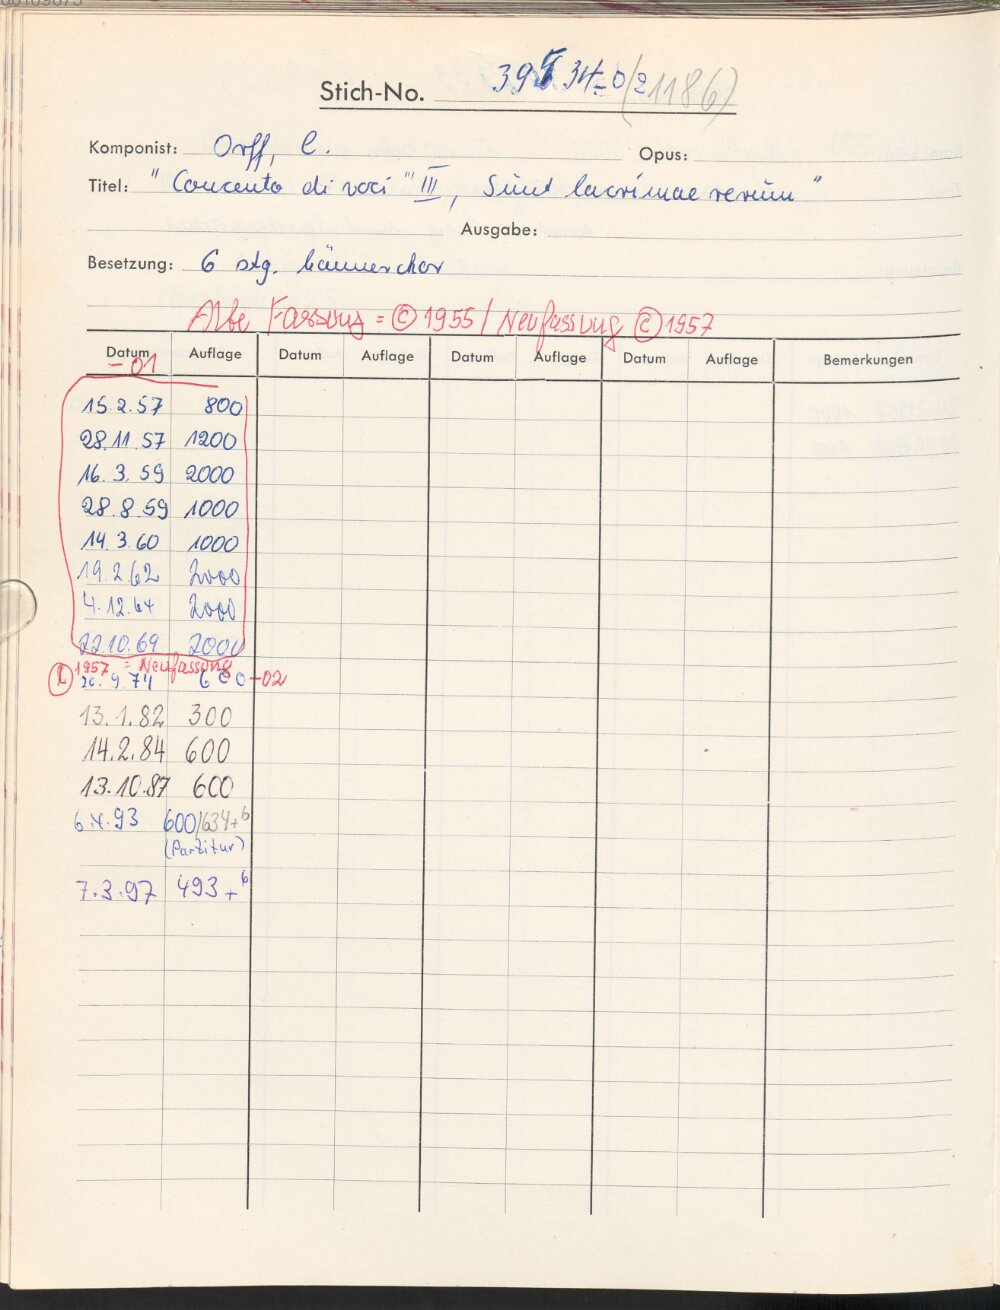 Stich-No. 39534-02 (1186)
Komponist: Orff, C. Opus:
Titel: "Concento di voci" III, Sunt lacrimae rerum"
Ausgabe:
Besetzung: 6 stg. Männerchor
Alte Fassung = © 1955 / Neufassung © 1957
Datum Auflage Datum Auflage Datum Auflage Datum Auflage Bemerkungen
-01
15.2.57 800
28.11.57 1200
16.3.59 2000
28.8.59 1000
14.3.60 1000
19.2.62 2000
4.12.64 2000
22.10.69 2000
1957 = Neufassung
20.9.74 600 -02
13.1.82 300
14.2.84 600
13.10.87 600
93 600/634+6
(Partitur)
7.3.97 493+6